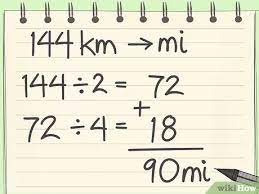 144 km → mi
144 ÷ 2 = 72
+
72 ÷ 4 = 18
90mi
wikiHow